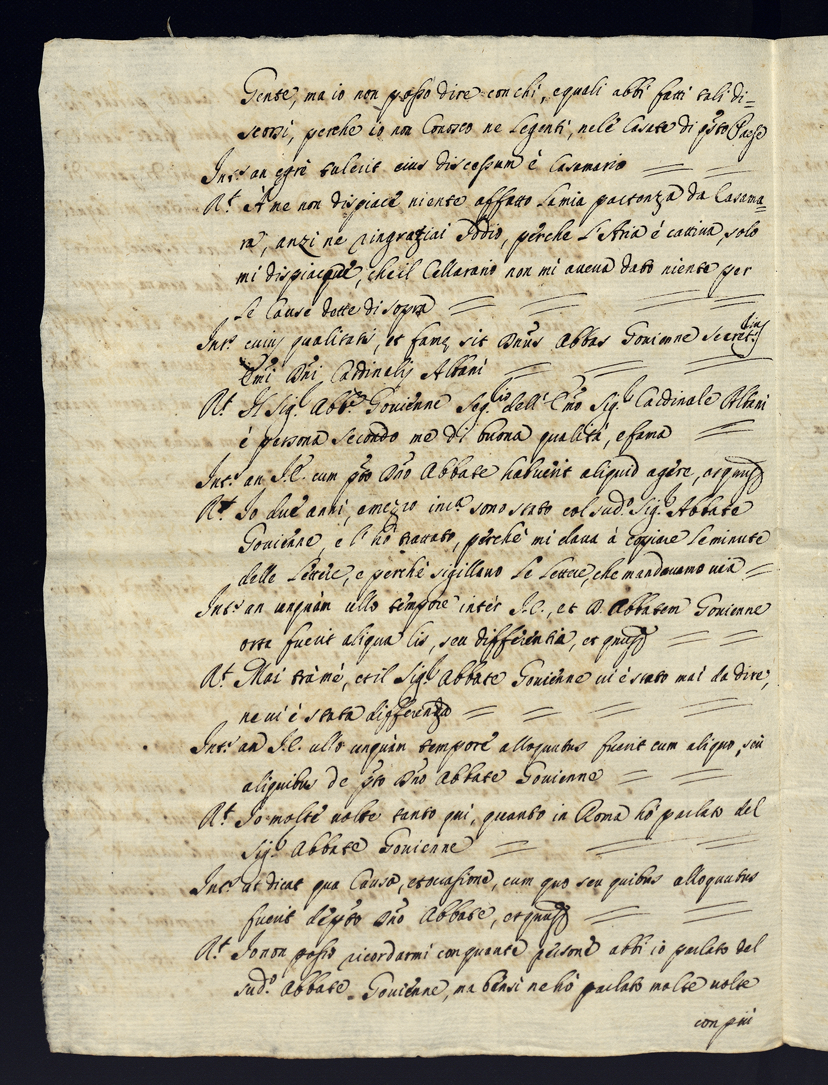 Gente, ma io non posso dire con chi, equali abbi fatti tali di=
scorsi, perche io non Conosco ne Legenti, nelè Casate di q̃sto Paese
Int.s an egrè tulerit eius discessum è Casamario
R.t À me non dispiacè niente affatto La mia partenza da Casama=
rà, anzi ne ringraziai Iddio, perche L'Aria è cattiva, solo
mi dispiacque, che il Cellarario non mi aveva dato niente per
Le Cause dette di sopra
Int.s cuius qualitatis, et famę sit Dnũs Abbas Gouienne Secret.rius
Em̃i Dñi Cardinalis Albani
R.t Il Sig.r Abb.te Gouienne Seg.rio dell' Em̃o Sig.r Cardinale Albani
è persona secondo me di buona qualità, e fama
Int.s an I.C. cum p̃to Dño Abbate habuerit aliquid agere, et
R.t Io due anni, e mezzo in sono stato col sud.o Sig.r Abbate
Gouienne, e l'hò trattato, perchè mi dava à copiare Le minute
delle Lettere, e perchè sigillavo Le Lettere, che mandavamo via
Int.s an unquàm ullo tempore intèr I.C., et D. Abbatem Gouienne
orta fuerit aliqua lis, seu differentia, et
R.t Mai trà mè, et il Sig.r Abbate Gouienne vi è stato mai da dire,
ne vi è stata differenza
Int.s an I.C. ullo unquàm tempore alloquutus fuerit cum aliquo, seù
aliquibus de p̃to Dño Abbate Gouienne
R.t Io moltè volte tanto quì, quanto in Roma hò parlato del
Sig.r Abbate Gouienne
Int.s ut dicat qua Causa, et occasione, cum quo seu quibus alloquutus
fuerit de p̃to Dño Abbate, et
R.t Io non posso ricordarmi con quante persone abbi io parlato del
sud.o Abbate Gouienne, ma bensì ne hò parlato molte volte
con più